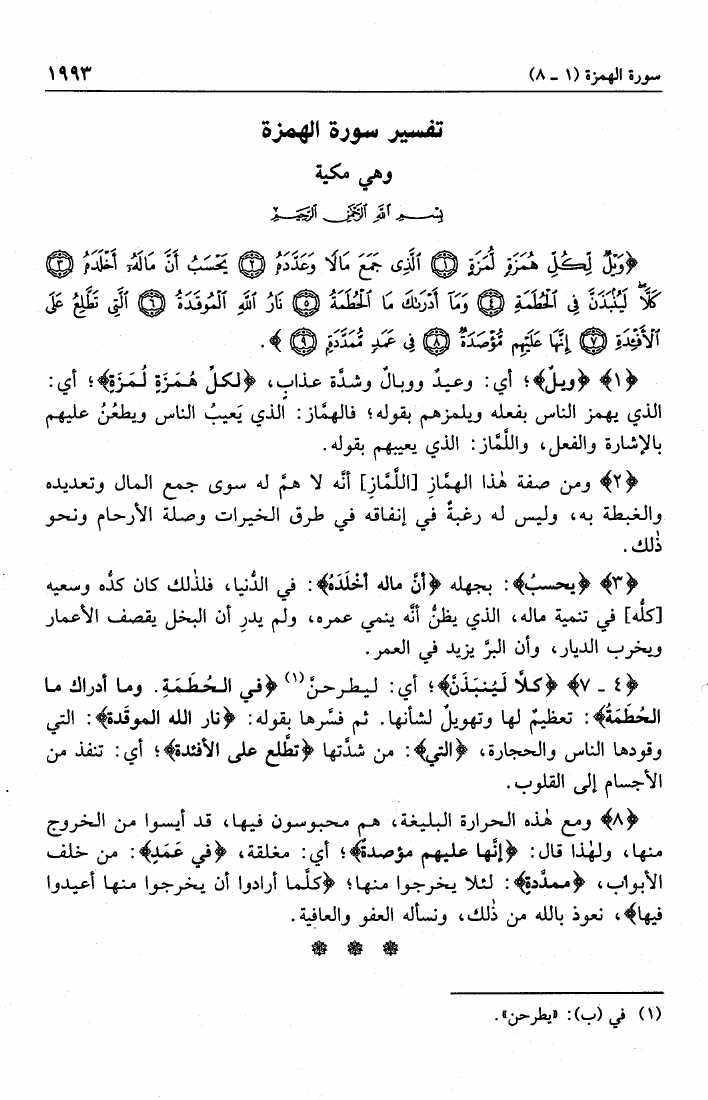 سورة الهمزة (١ ـ ٨) ١٩٩٣
تفسير سورة الهمزة
وهي مكية
بِسْمِ اللَّهِ الرَّحْمَٰنِ الرَّحِيمِ
﴿وَيْلٌ لِّكُلِّ هُمَزَةٍ لُّمَزَةٍ ١ الَّذِى جَمَعَ مَالًا وَعَدَّدَهُ ٢ يَحْسَبُ أَنَّ مَالَهُۥ أَخْلَدَهُ ٣
كَلَّا ۖ لَيُنۢبَذَنَّ فِى الْحُطَمَةِ ٤ وَمَآ أَدْرَىٰكَ مَا الْحُطَمَةُ ٥ نَارُ اللَّهِ الْمُوقَدَةُ ٦ الَّتِى تَطَّلِعُ عَلَى
الْأَفْـِٔدَةِ ٧ إِنَّهَا عَلَيْهِم مُّؤْصَدَةٌ ٨ فِى عَمَدٍ مُّمَدَّدَةٍۭ ٩﴾.
﴿١﴾ ﴿ويلٌ﴾؛ أي: وعيدٌ ووبالٌ وشدَّة عذابٍ، ﴿لكلِّ هُمَزَةٍ لُمَزَةٍ﴾؛ أي:
الذي يهمز الناس بفعله ويلمزهم بقوله؛ فالهمَّاز: الذي يَعيبُ الناس ويطعُنُ عليهم
بالإشارة والفعل، واللَّمَّاز: الذي يعيبهم بقوله.
﴿٢﴾ ومن صفة هٰذا الهمَّازِ [اللَّمَّازِ] أنَّه لا همَّ له سوى جمع المال وتعديده
والغبطة به، وليس له رغبةٌ في إنفاقه في طرق الخيرات وصلة الأرحام ونحو
ذٰلك.
﴿٣﴾ ﴿يحسبُ﴾: بجهله ﴿أنَّ ماله أخْلَدَهُ﴾: في الدُّنيا، فلذٰلك كان كدُّه وسعيه
[كلُّه] في تنمية ماله، الذي يظنُّ أنَّه ينمي عمره، ولم يدرِ أن البخل يقصف الأعمار
ويخرب الديار، وأن البرَّ يزيد في العمر.
﴿٤ ـ ٧﴾ ﴿كلَّا لَيُنبَذَنَّ﴾؛ أي: ليطرحنَّ(١) ﴿في الحُطَمَةِ. وما أدراك ما
الحُطَمَةُ﴾: تعظيمٌ لها وتهويلٌ لشأنها. ثم فسَّرها بقوله: ﴿نار الله الموقَدة﴾: التي
وقودها الناس والحجارة، ﴿التي﴾: من شدَّتها ﴿تطَّلع على الأفئدة﴾؛ أي: تنفذ من
الأجسام إلى القلوب.
﴿٨﴾ ومع هٰذه الحرارة البليغة، هم محبوسون فيها، قد أيسوا من الخروج
منها، ولهٰذا قال: ﴿إنَّها عليهم مؤصدةٌ﴾؛ أي: مغلقة، ﴿في عَمَدٍ﴾: من خلف
الأبواب، ﴿ممدَّدة﴾: لئلا يخرجوا منها؛ ﴿كلَّما أرادوا أن يخرجوا منها أعيدوا
فيها﴾، نعوذ بالله من ذٰلك، ونسأله العفو والعافية.
(١) في (ب): «يطرحن».